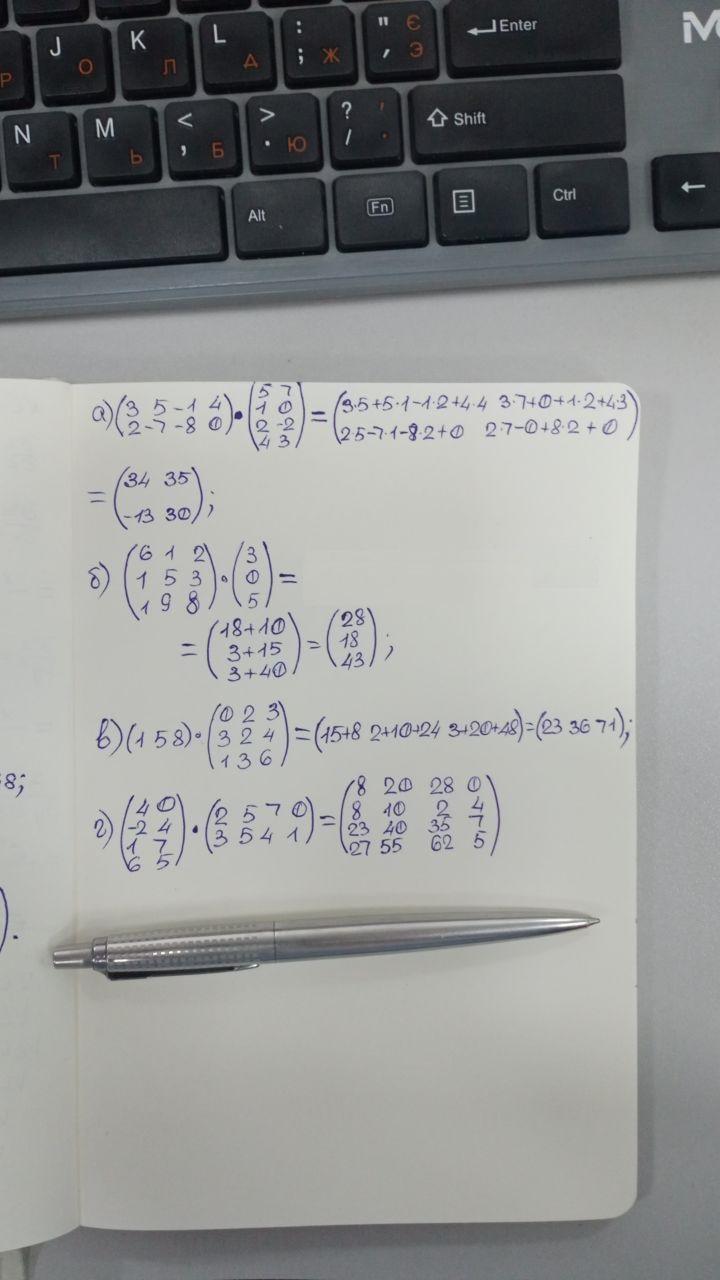 J О K Л L Д : ; Ж " Є ' Э Enter
Р
N Т M Ь < , Б > . Ю ? / ' . Shift
Alt Fn Ctrl ←
а) (3 5 -1 4
2 -7 -8 0) · (5 7
1 0
2 -2
4 3) = (3·5+5·1-1·2+4·4 3·7+0+1·2+4·3
2·5-7·1-8·2+0 2·7-0+8·2+0)
= (34 35
-13 30);
б) (6 1 2
1 5 3
1 9 8) · (3
0
5) =
= (18+10
3+15
3+40) = (28
18
43);
в) (1 5 8) · (0 2 3
3 2 4
1 3 6) = (15+8 2+10+24 3+20+48) = (23 36 71);
8;
г) (4 0
-2 4
1 7
6 5) · (2 5 7 0
3 5 4 1) = (8 20 28 0
8 10 2 4
23 40 35 7
27 55 62 5)
).